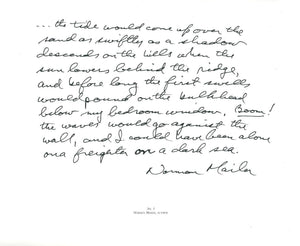 ...the tide would come up over the
sand as swiftly as a shadow
descends on the hills when the
sun lowers behind the ridge,
and before long the first swells
would pound on the bulkhead
below my bedroom window. Boom!
the waves would go against the
wall, and I could have been alone
on a freighter on a dark sea.
Norman Mailer